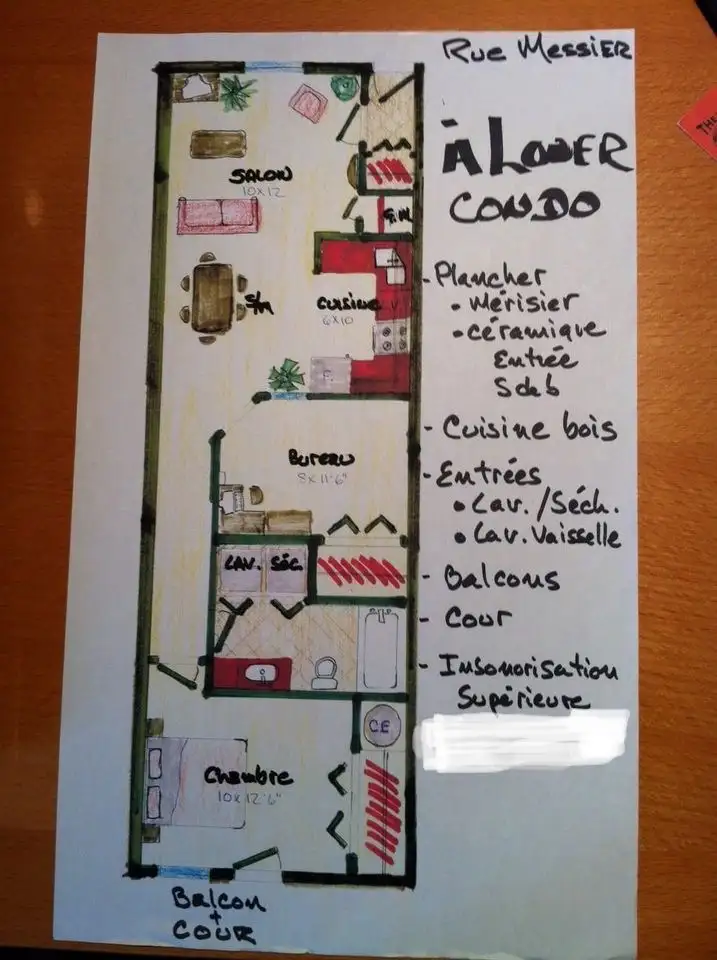 Rue Messier
À Louer
Condo
- Plancher
• Mérisier
• céramique
Entrée
Sdb
- Cuisine bois
- Entrées
• Lav./Séch.
• Lav. Vaisselle
- Balcons
- Cour
- Insonorisation
Supérieure
Salon
10x12
G.M
S/M
Cuisine
6x10
F.
Bureau
8x11'6"
LAV. SÉC.
C.E
Chambre
10x12'6"
Balcon
+
Cour
THE